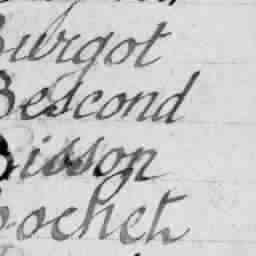 Burgot
Bescond
Bisson
Bochet